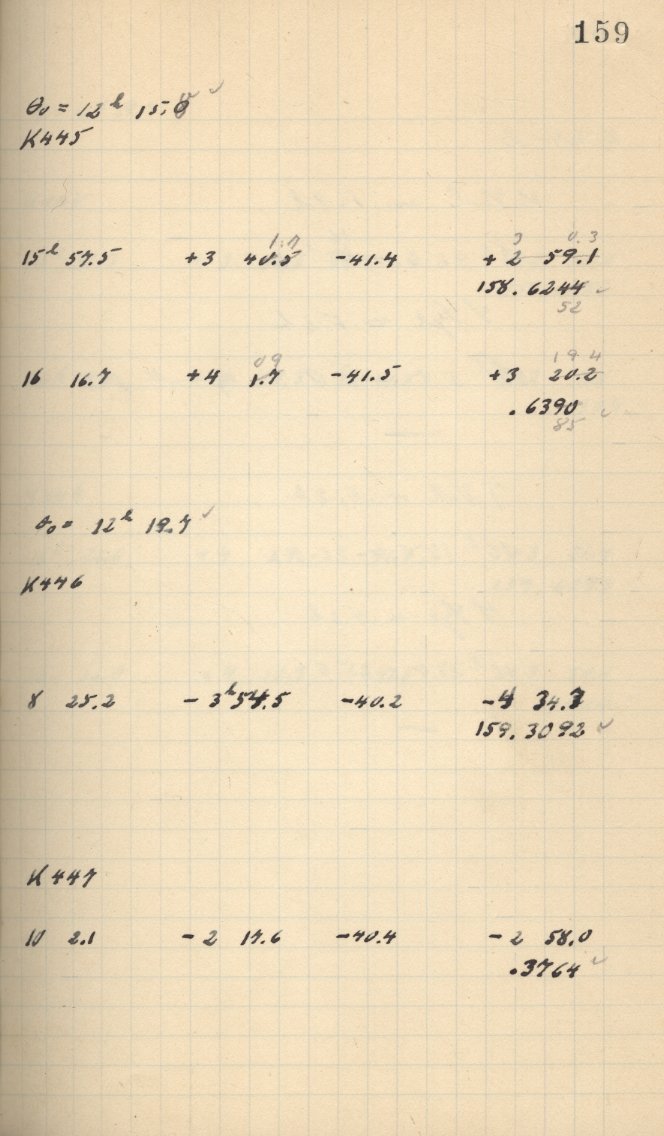 159
θ₀ = 12ʰ 15.8 ✓
K445
1.7 3 0.3
15ʰ 57.5 +3 40.5 -41.4 + 2 59.1
158.6244 ✓
52
09 19 4
16 16.7 +4 1.7 -41.5 +3 20.2
.6390 ✓
85
θ₀ = 12ʰ 19.7 ✓
K446
8 25.2 - 3ʰ 54.5 -40.2 -4 34.7
159.3092 ✓
K447
10 2.1 - 2 17.6 -40.4 - 2 58.0
.3764 ✓